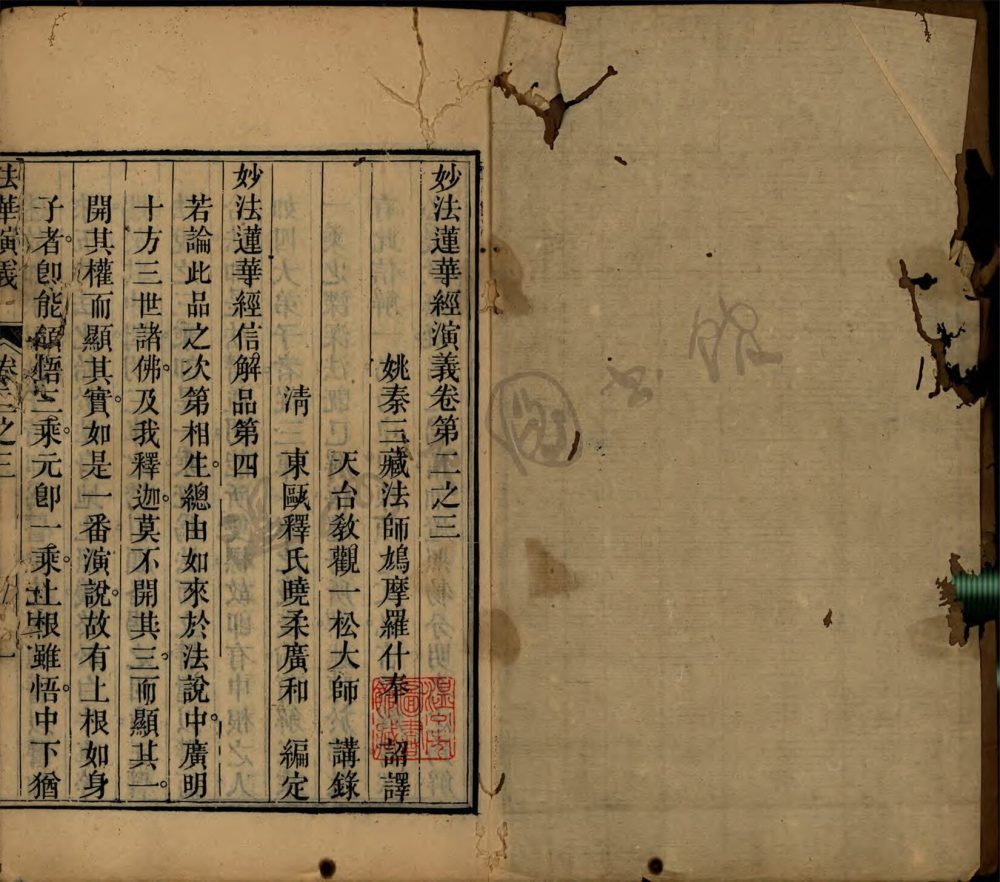 妙法蓮華經演義卷第二之三
姚秦三藏法師鳩摩羅什奉 詔譯
天台敎觀一松大師 講錄
清 東甌釋氏曉柔廣和 編定
妙法蓮華經信解品第四
若論此品之次第相生。總由如來於法說中。廣明
十方三世諸佛。及我釋迦。莫不開其三。而顯其一。
開其權而顯其實。如是一番演說。故有上根如身
子者。卽能頓悟三乘。元卽一乘。上根雖悟。中下猶
法華演義 卷二之三 一